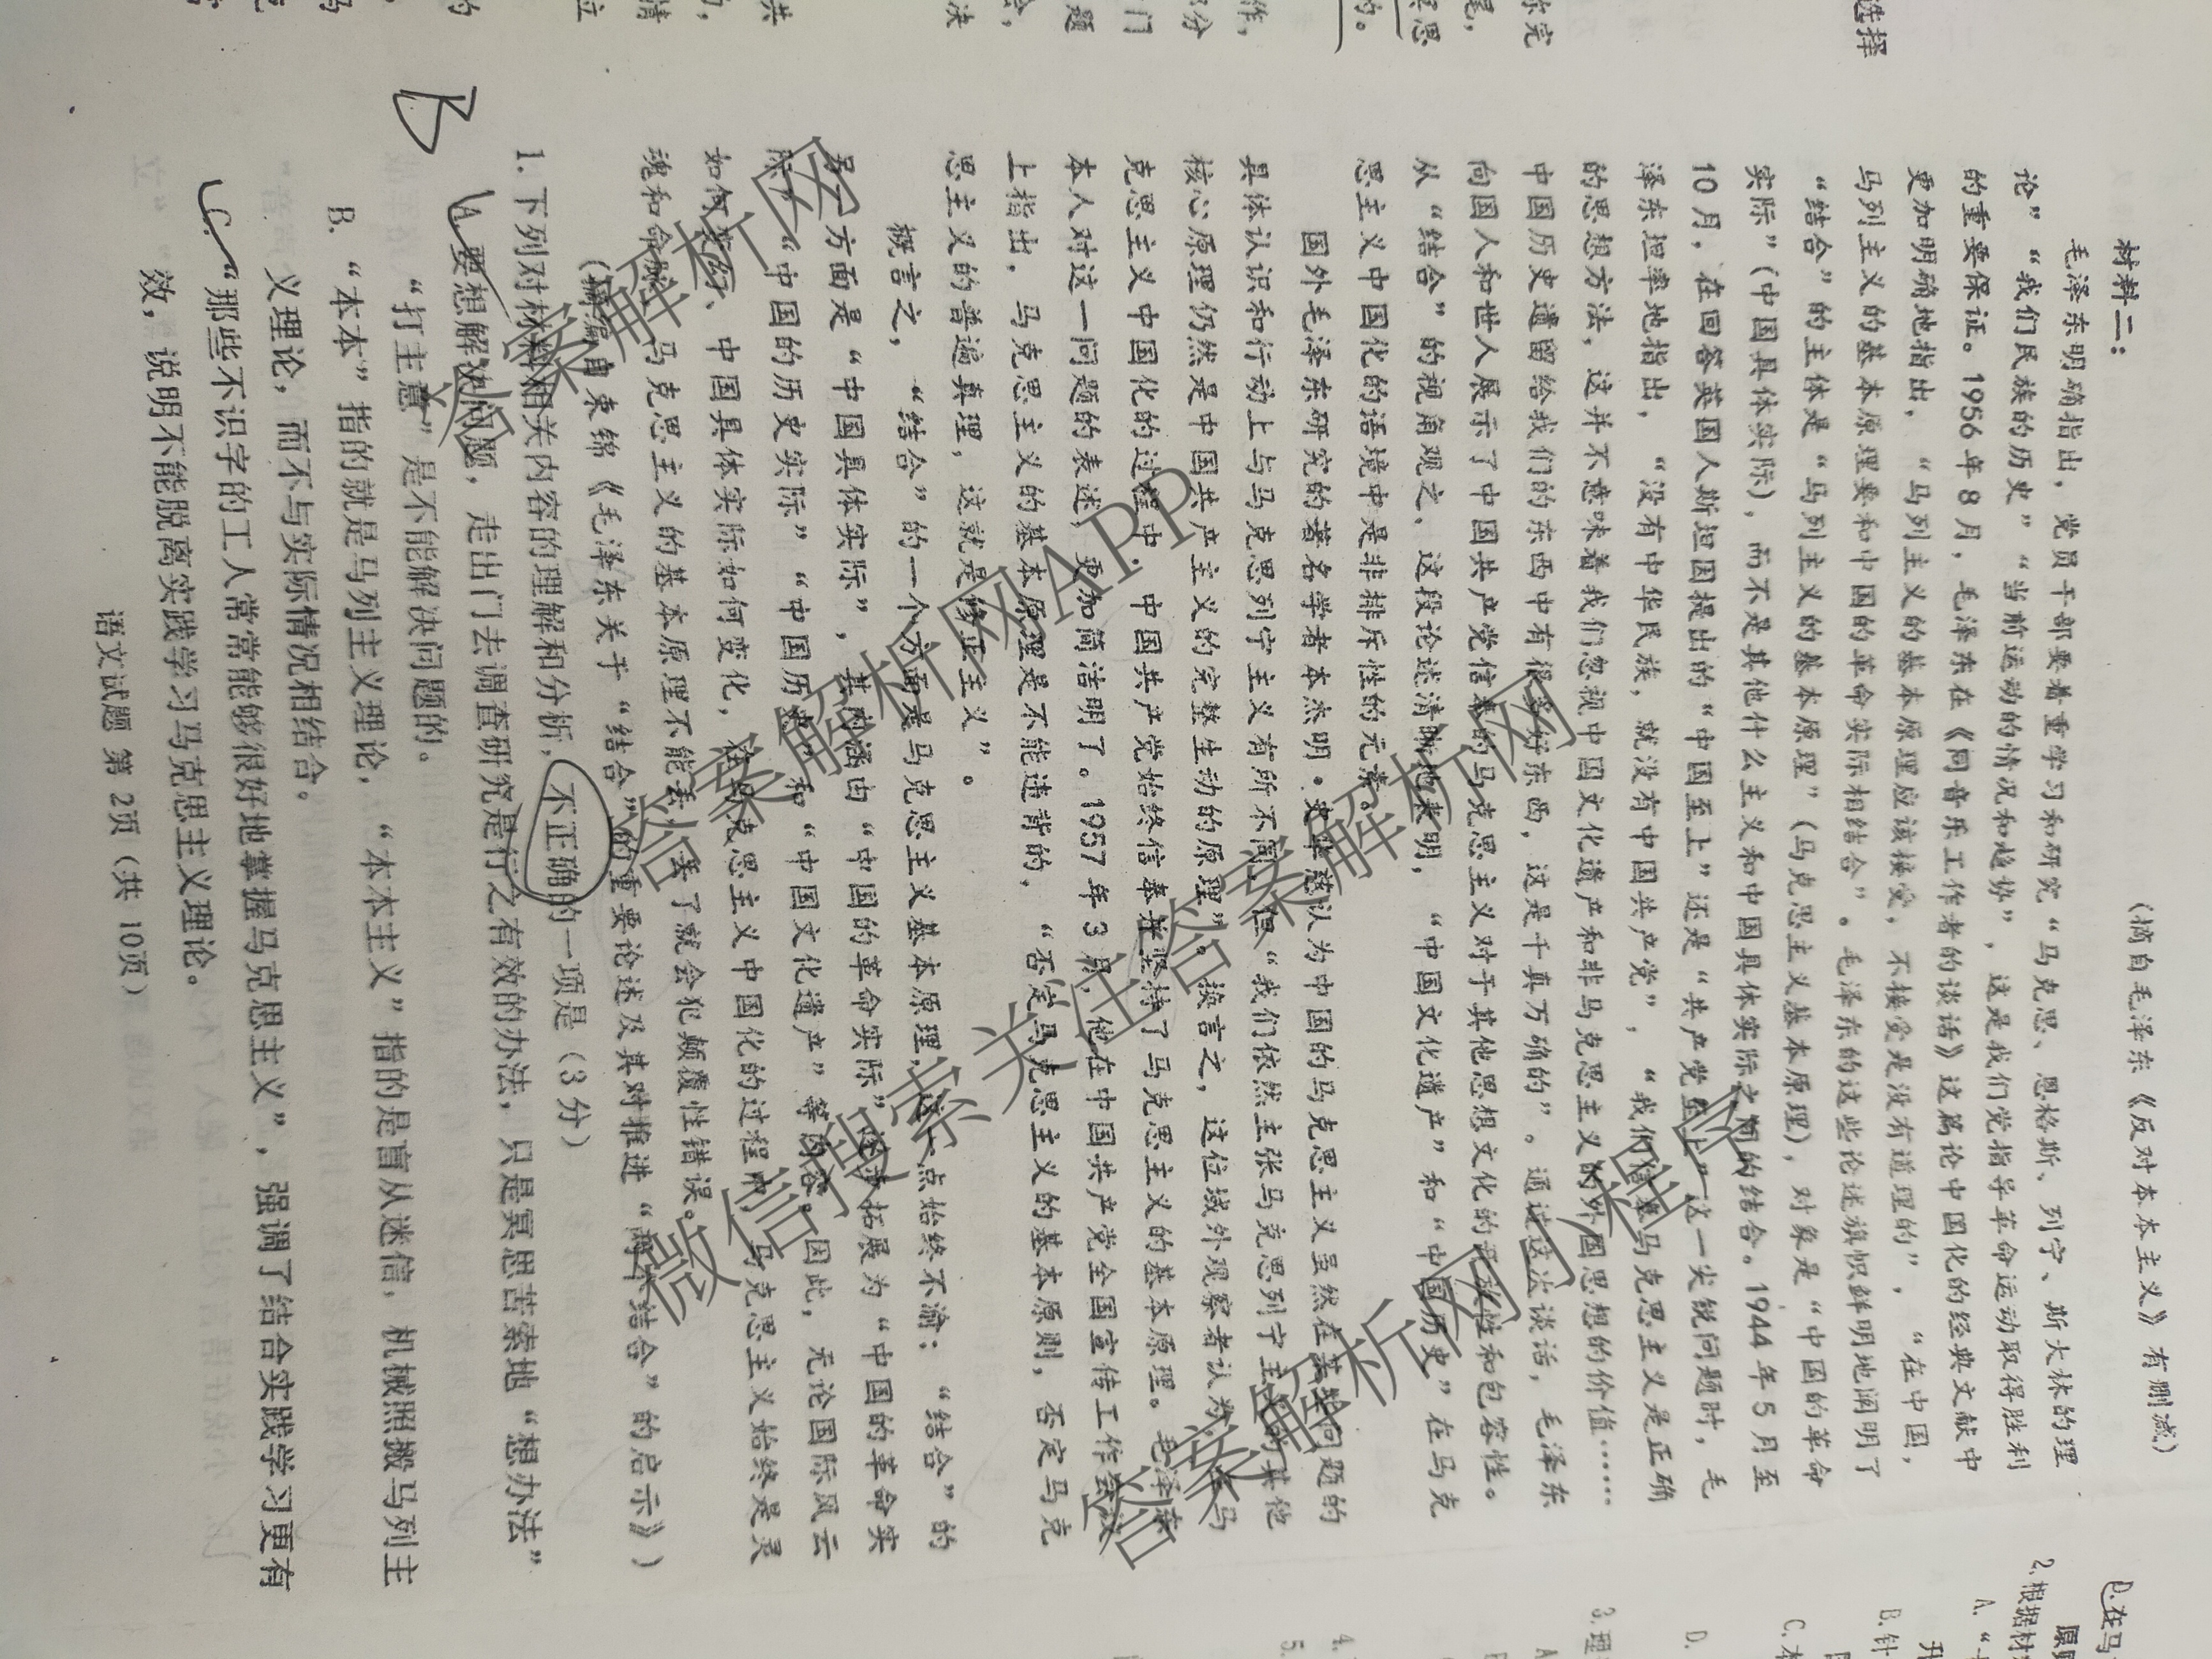 (摘自毛泽东《反对本本主义》有删减)
材料二：
毛泽东明确指出，党员干部要着重学习和研究“马克思、恩格斯、列宁、斯大林的理
论”“我们民族的历史”“当前运动的情况和趋势”，这是我们党指导革命运动取得胜利
的重要保证。1956年8月，毛泽东在《同音乐工作者的谈话》这篇论中国化的经典文献中
更加明确地指出，“马列主义的基本原理应该接受，不接受是没有道理的”，“在中国，
马列主义的基本原理要和中国的革命实际相结合”。毛泽东的这些论述旗帜鲜明地阐明了
“结合”的主体是“马列主义的基本原理”(马克思主义基本原理)，对象是“中国的革命
实际”(中国具体实际)，而不是其他什么主义和中国具体实际之间的结合。1944年5月至
10月，在回答英国人斯坦因提出的“中国至上”还是“共产党至上”这一尖锐问题时，毛
泽东坦率地指出，“没有中华民族，就没有中国共产党”，“我们信奉马克思主义是正确
的思想方法，这并不意味着我们忽视中国文化遗产和非马克思主义的外国思想的价值……
中国历史遗留给我们的东西中有很多好东西，这是千真万确的”。通过这次谈话，毛泽东
向国人和世人展示了中国共产党信奉的马克思主义对于其他思想文化的开放性和包容性。
从“结合”的视角观之，这段论述清晰地表明，“中国文化遗产”和“中国历史”在马克
思主义中国化的语境中是非排斥性的元素。
国外毛泽东研究的著名学者本杰明·史华慈认为中国的马克思主义虽然在某些问题的
具体认识和行动上与马克思列宁主义有所不同，但“我们依然主张马克思列宁主义的其他
核心原理仍然是中国共产主义的完整生动的原理”。换言之，这位域外观察者认为，在马
克思主义中国化的过程中，中国共产党始终信奉并坚持了马克思主义的基本原理。毛泽东
本人对这一问题的表述，更加简洁明了。1957年3月，他在中国共产党全国宣传工作会议
上指出，马克思主义的基本原理是不能违背的，“否定马克思主义的基本原则，否定马克
思主义的普遍真理，这就是修正主义”。
概言之，“结合”的一个方面是马克思主义基本原理，这一点始终不渝；“结合”的
另一方面是“中国具体实际”，其内涵由“中国的革命实际”逐步拓展为“中国的革命实
际”“中国的历史实际”“中国历史”和“中国文化遗产”等内容。因此，无论国际风云
如何变幻、中国具体实际如何变化，在马克思主义中国化的过程中，马克思主义始终是灵
魂和命脉，马克思主义的基本原理不能丢，丢了就会犯颠覆性错误。
(摘编自束锦《毛泽东关于“结合”的重要论述及其对推进“两个结合”的启示》)
1.下列对材料相关内容的理解和分析，不正确的一项是(3分)
B
A.要想解决问题，走出门去调查研究是行之有效的办法，只是冥思苦索地“想办法”
“打主意”是不能解决问题的。
B.“本本”指的就是马列主义理论，“本本主义”指的是盲从迷信，机械照搬马列主
义理论，而不与实际情况相结合。
C.“那些不识字的工人常常能够很好地掌握马克思主义”，强调了结合实践学习更有
效，说明不能脱离实践学习马克思主义理论。
语文试题 第2页(共10页)
选择
D.在马
2.根据材
A.
B.针
C.
D.
3.理
A
4.
5.
答案解析网
答案解析网APP
微信搜索关注答案解析网
答案解析网